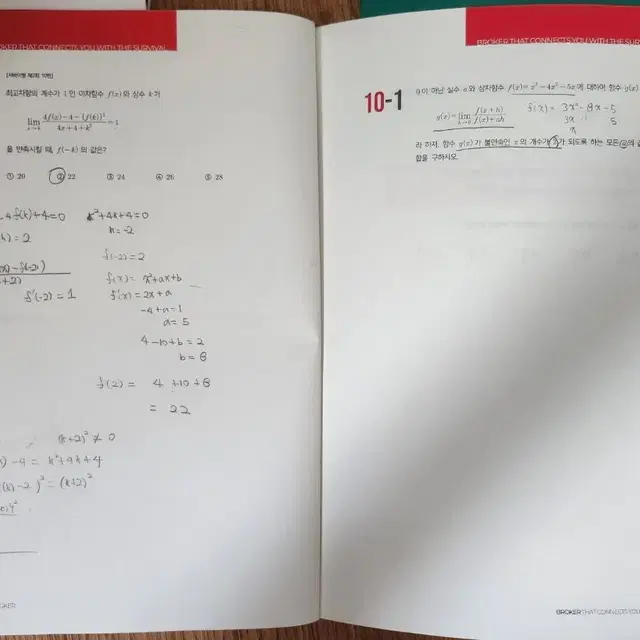 BROKER THAT CONNECTS YOU WITH THE SURVIVAL
최고차항의 계수가 1인 이차함수 f(x)와 상수 k가
lim x→k 4f(x)-4-{f(k)}² / 4x+4+k² = 1
을 만족시킬 때, f(-k)의 값은?
① 20 ② 22 ③ 24 ④ 26 ⑤ 28
4f(k)+4=0
k²+4k+4=0
k=-2
f(-2)=2
f'(-2)=1
f(x)= x²+ax+b
f'(x)= 2x+a
-4+a=1
a=5
4-10+b=2
b=8
f(2)= 4+10+8
= 22
(k+2)²≠0
-4= k²+4k+4
(k)-2)²=(k+2)²
BROKER
BROKER THAT CONNECTS YOU WITH THE SUR
10-1
이 아닌 실수 a와 삼차함수 f(x)=x³-4x²-5x에 대하여 함수 g(x)
g(x)=lim h→0 f(x+h) / f(x)+ah
f'(x)= 3x²-8x-5
3x 5
x
라 하자. 함수 g(x)가 불연속인 x의 개수가 가 되도록 하는 모든 a의
합을 구하시오.
BROKER THAT CONNECTS YOU